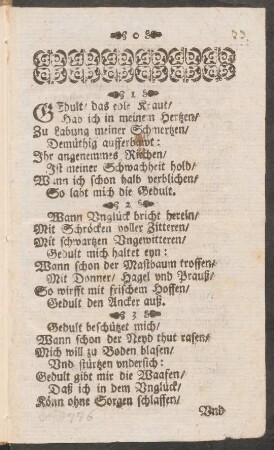 0
33
1
GEdult/ das edle Kraut/
Hab ich in meinem Hertzen/
Zu Labung meiner Schmertzen/
Demüthig aufferbawt:
Ihr angenemmes Riechen/
Ist meiner Schwachheit hold/
Wann ich schon halb verblichen/
So labt mich die Gedult.
2
Wann Vnglück bricht herein/
Mit Schröcken voller Zitteren/
Mit schwartzen Vngewitteren/
Gedult mich haltet eyn:
Wann schon der Mastbaum troffen/
Mit Donner/ Hagel vnd Prauß/
So wirfft mit frischem Hoffen/
Gedult den Ancker auß.
3
Gedult beschützet mich/
Wann schon der Neyd thut rasen/
Mich will zu Boden blasen/
Vnd stürtzen vndersich:
Gedult gibt mir die Waafen/
Daß ich in dem Vnglück/
Könn ohne Sorgen schlaffen/
Vnd